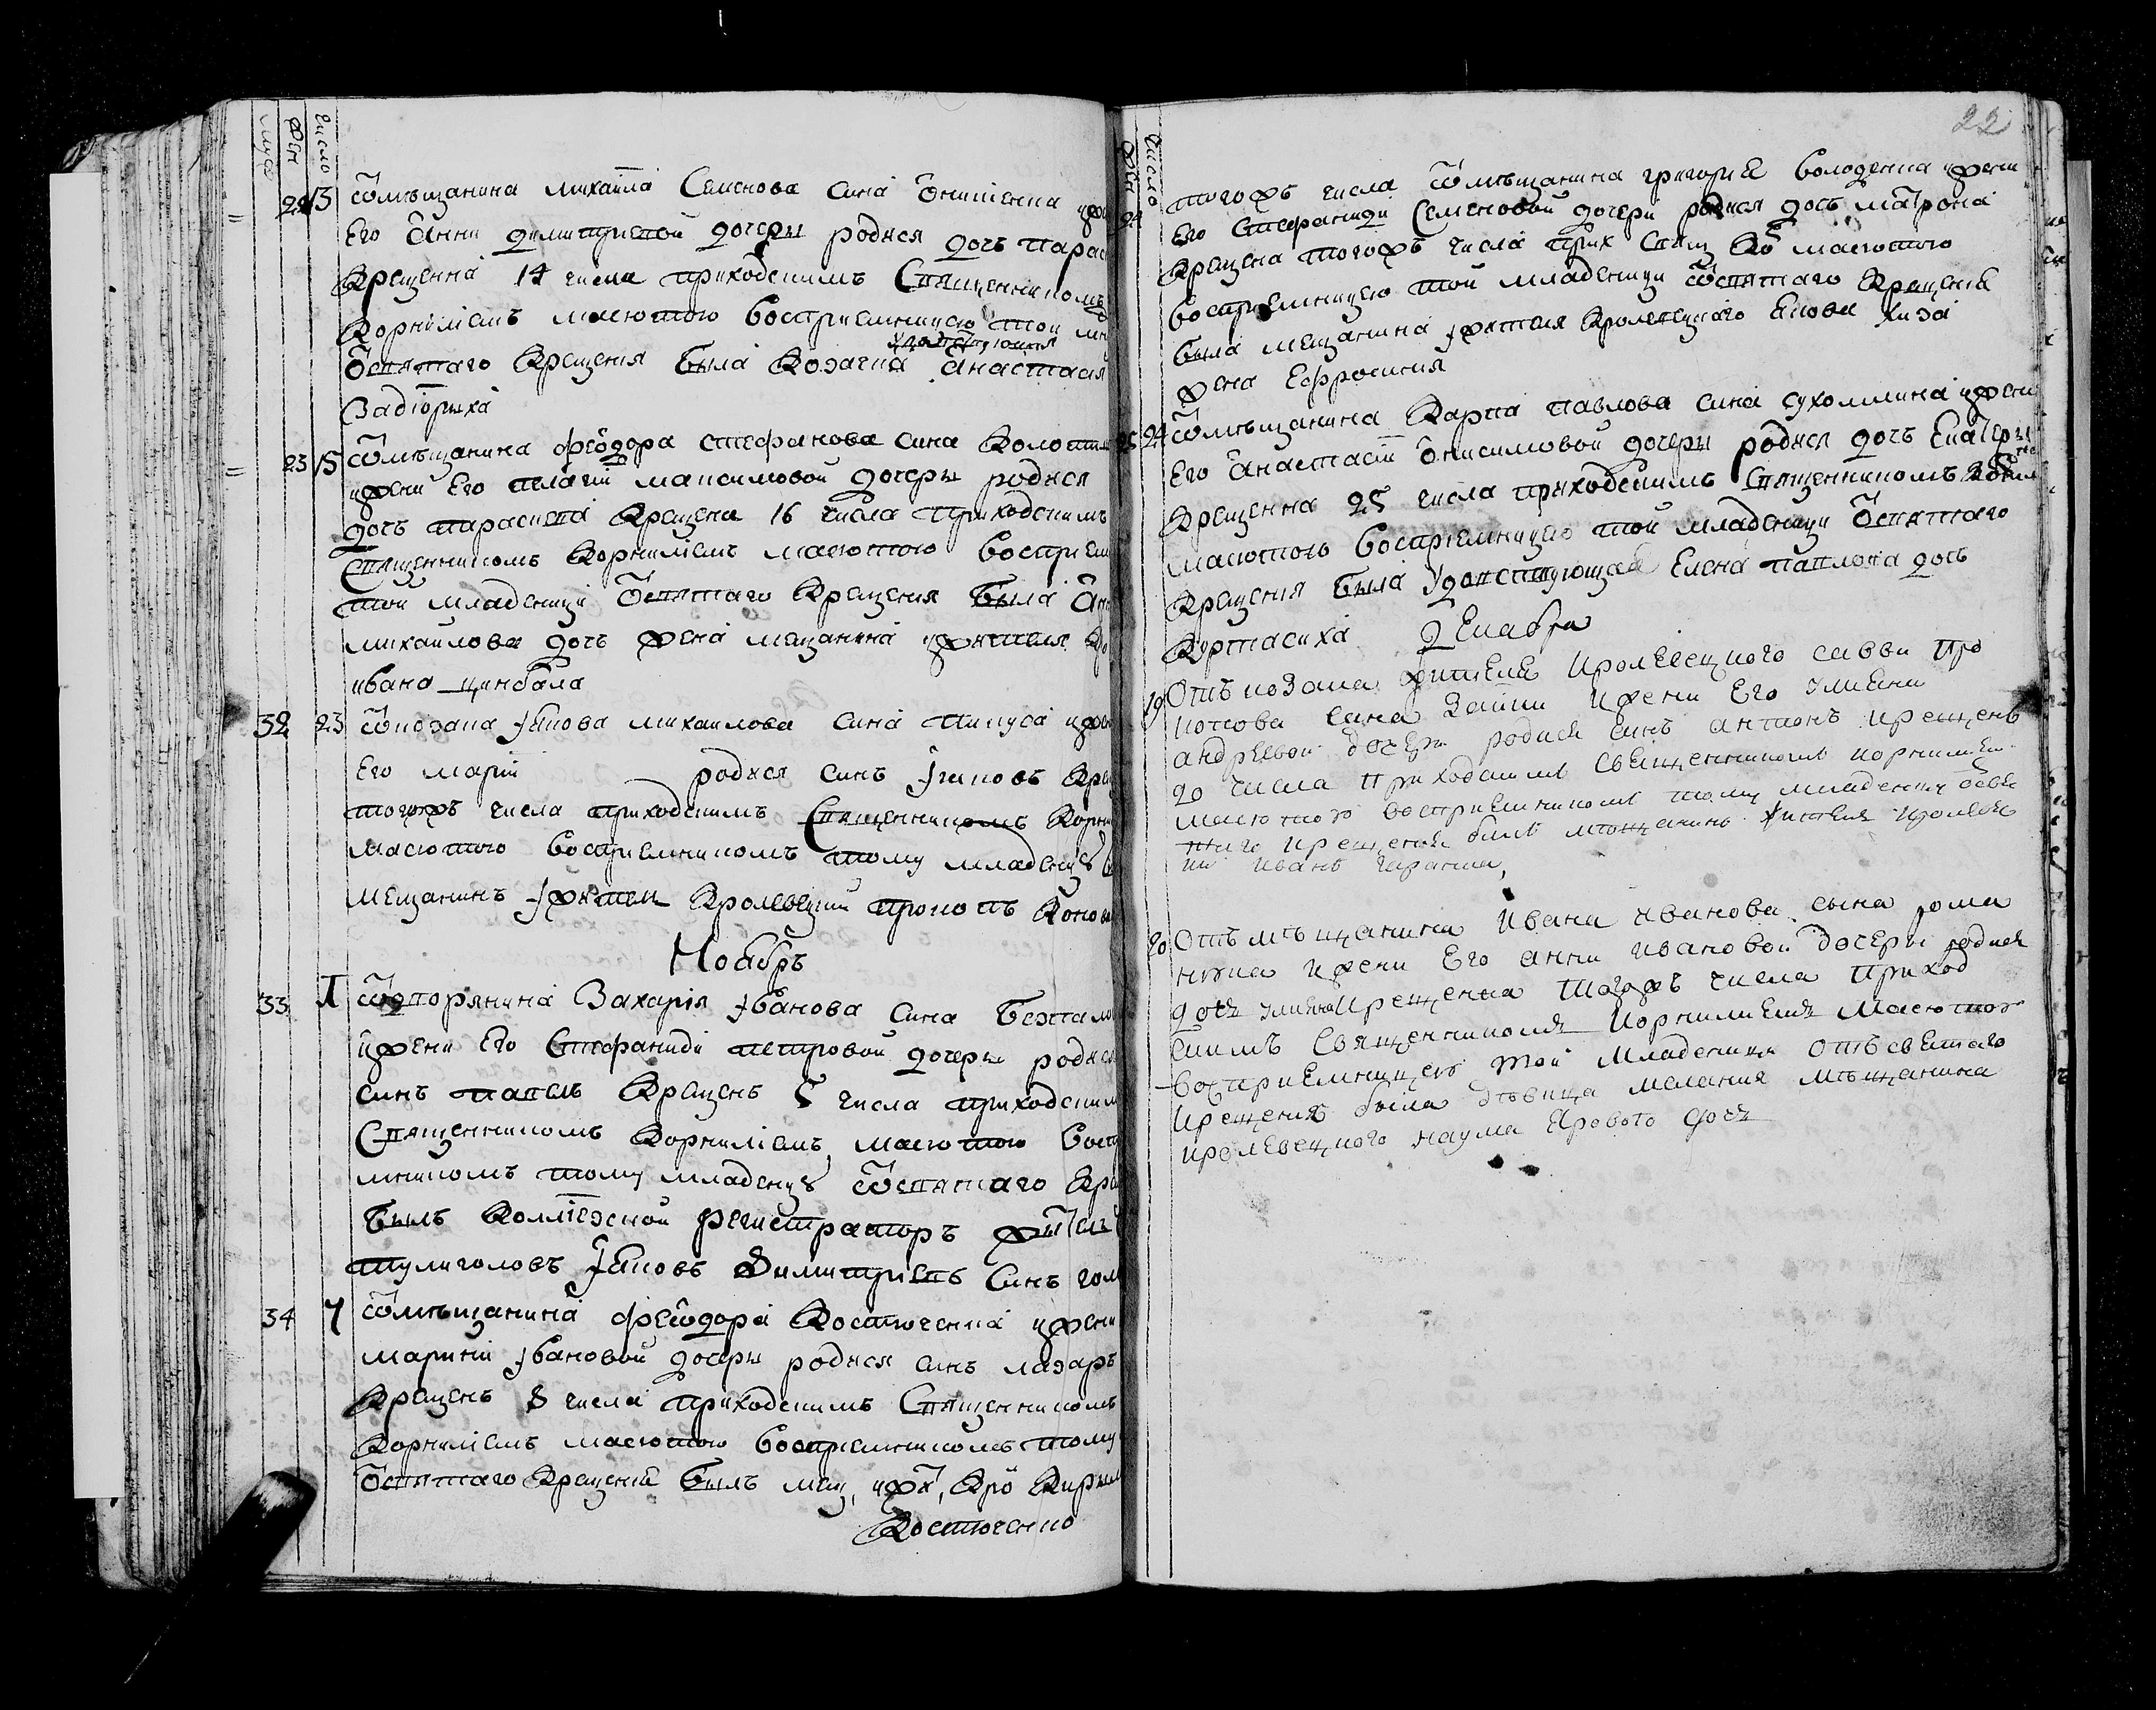 число
жен
муж
22 13 Ѿ мѣщанина михаила Семенова сина Онищенка и жен
Его Анни димитриевой дочеры родися дочь параск
Крещенна 14 числа приходскимъ Священникомъ
Корниліемъ масютою восприемницею той мл
Ѿ святаго Крещения была Козачка Анастасия
Забіорыха
23 15 Ѿ мѣщанина феодора стефанова сина
и жени Его пелагии максимовой дочеры родися
дочь параскева Крещена 16 числа приходскимъ
Священникомъ Корниліемъ масютою восприем
той младеницы Ѿ святаго Крещения была Анн
михайлова дочь жена мещанина и жителя Кро
ивана цинбала
32 23 Ѿ козака Якова михаилова сина пипуса и жен
Его марии родися синъ Яковъ Кре
тогожъ числа приходскимъ Священникомъ Корни
масютою восприемникомъ тому младенцу
мещанинъ и житель Кролевецкий прокопъ Конов
Ноябрь
33 1 Ѿ дворянина Захария Иванова сина
и жени Его Стефаниди петровой дочеры родися
синъ павелъ Крещенъ 5 числа приходским
Священникомъ Корниліемъ масютою восп
мникомъ тому младенцу Ѿ святаго Кре
былъ Коллежской регистраторъ жител
тулиголовъ Яковъ Димитриевъ Синъ гол
34 7 Ѿ мѣщанина феодора Костюченка и жени
марини Ивановой дочеры родися синъ лазаръ
Крещенъ 8 числа приходскимъ Священникомъ
Корниліемъ масютою восприемникомъ тому
Ѿ святаго Крещения былъ мещ, и жи, Кро Кирил
Костюченко
22
число
жен
24 тогожъ числа Ѿ мѣщанина григория володенка и жени
Его Стефаниди Семеновой дочери родися дочь матрона
Крещена тогожъ числа прих Свящ Ко масютою
восприемницею той младеницы Ѿ святаго Крещения
была мещанина и жителя Кролевецкаго Якова
жена Ефросиния
25 24 Ѿ мѣщанина Карпа павлова сина сухомлина и жени
Его анастасии Онисимовой дочеры родися дочь Екатеры
Крещенна 25 числа приходскимъ Священникомъ Корнил
масютою восприемницею той младеницы Ѿ святаго
Крещения была Елена павлова дочь
Куртасиха Декабра
19 Отъ козака жителя кролевецкого савви про
копова сина Зайки и жени Его Улияни
андреевой дочери родися синъ антонъ крещенъ
20 числа приходскимъ священникомъ корнилием
масютою восприемникомъ тому младенцу Ѿ свя
таго крещения былъ мѣщанинъ житель кролеве
ц иванъ
20 Отъ мѣщанина Ивана иванова сына рома
ненка и жени Его анни ивановой дочери родися
дочь улияна крещенна тогожъ числа приход
скимъ священникомъ корнилиемъ масютою
восприемницею той младеницы отъ святаго
крещения была дѣвица мелания мѣщанина
кролевецкого наума Ярового дочь